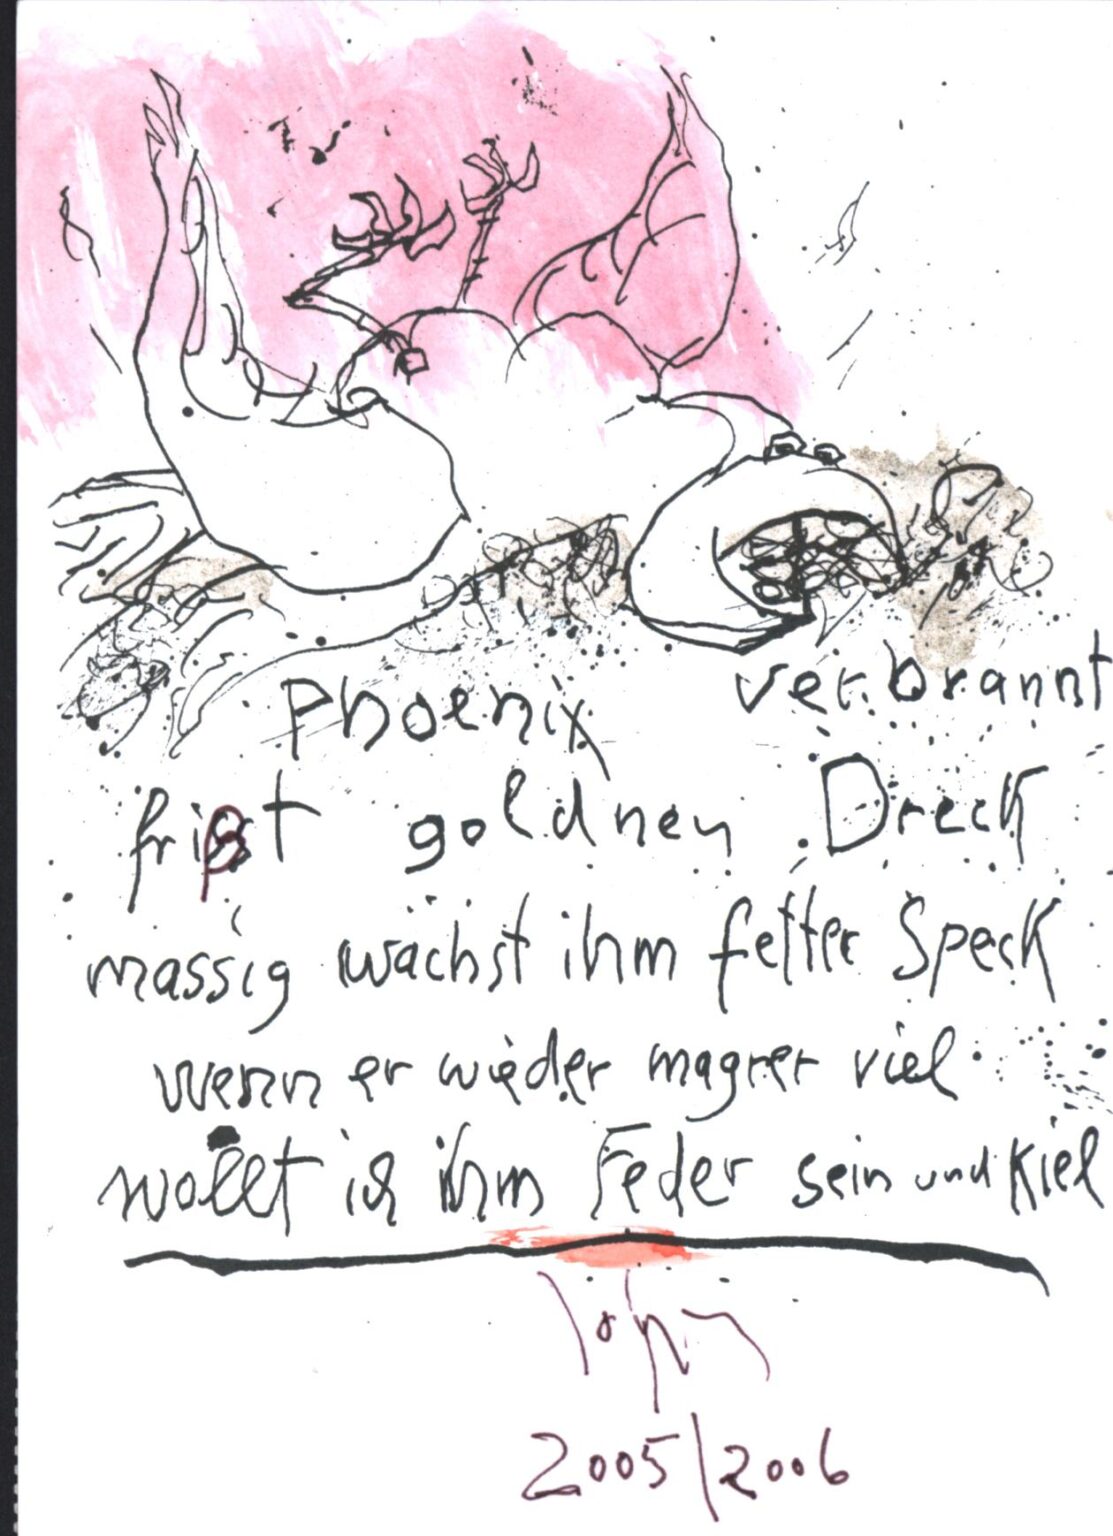 Phoenix verbrannt
frißt goldnen Dreck
massig wächst ihm fetter Speck
wenn er wieder magrer viel
wollt ich ihm Feder sein und Kiel
2005/2006